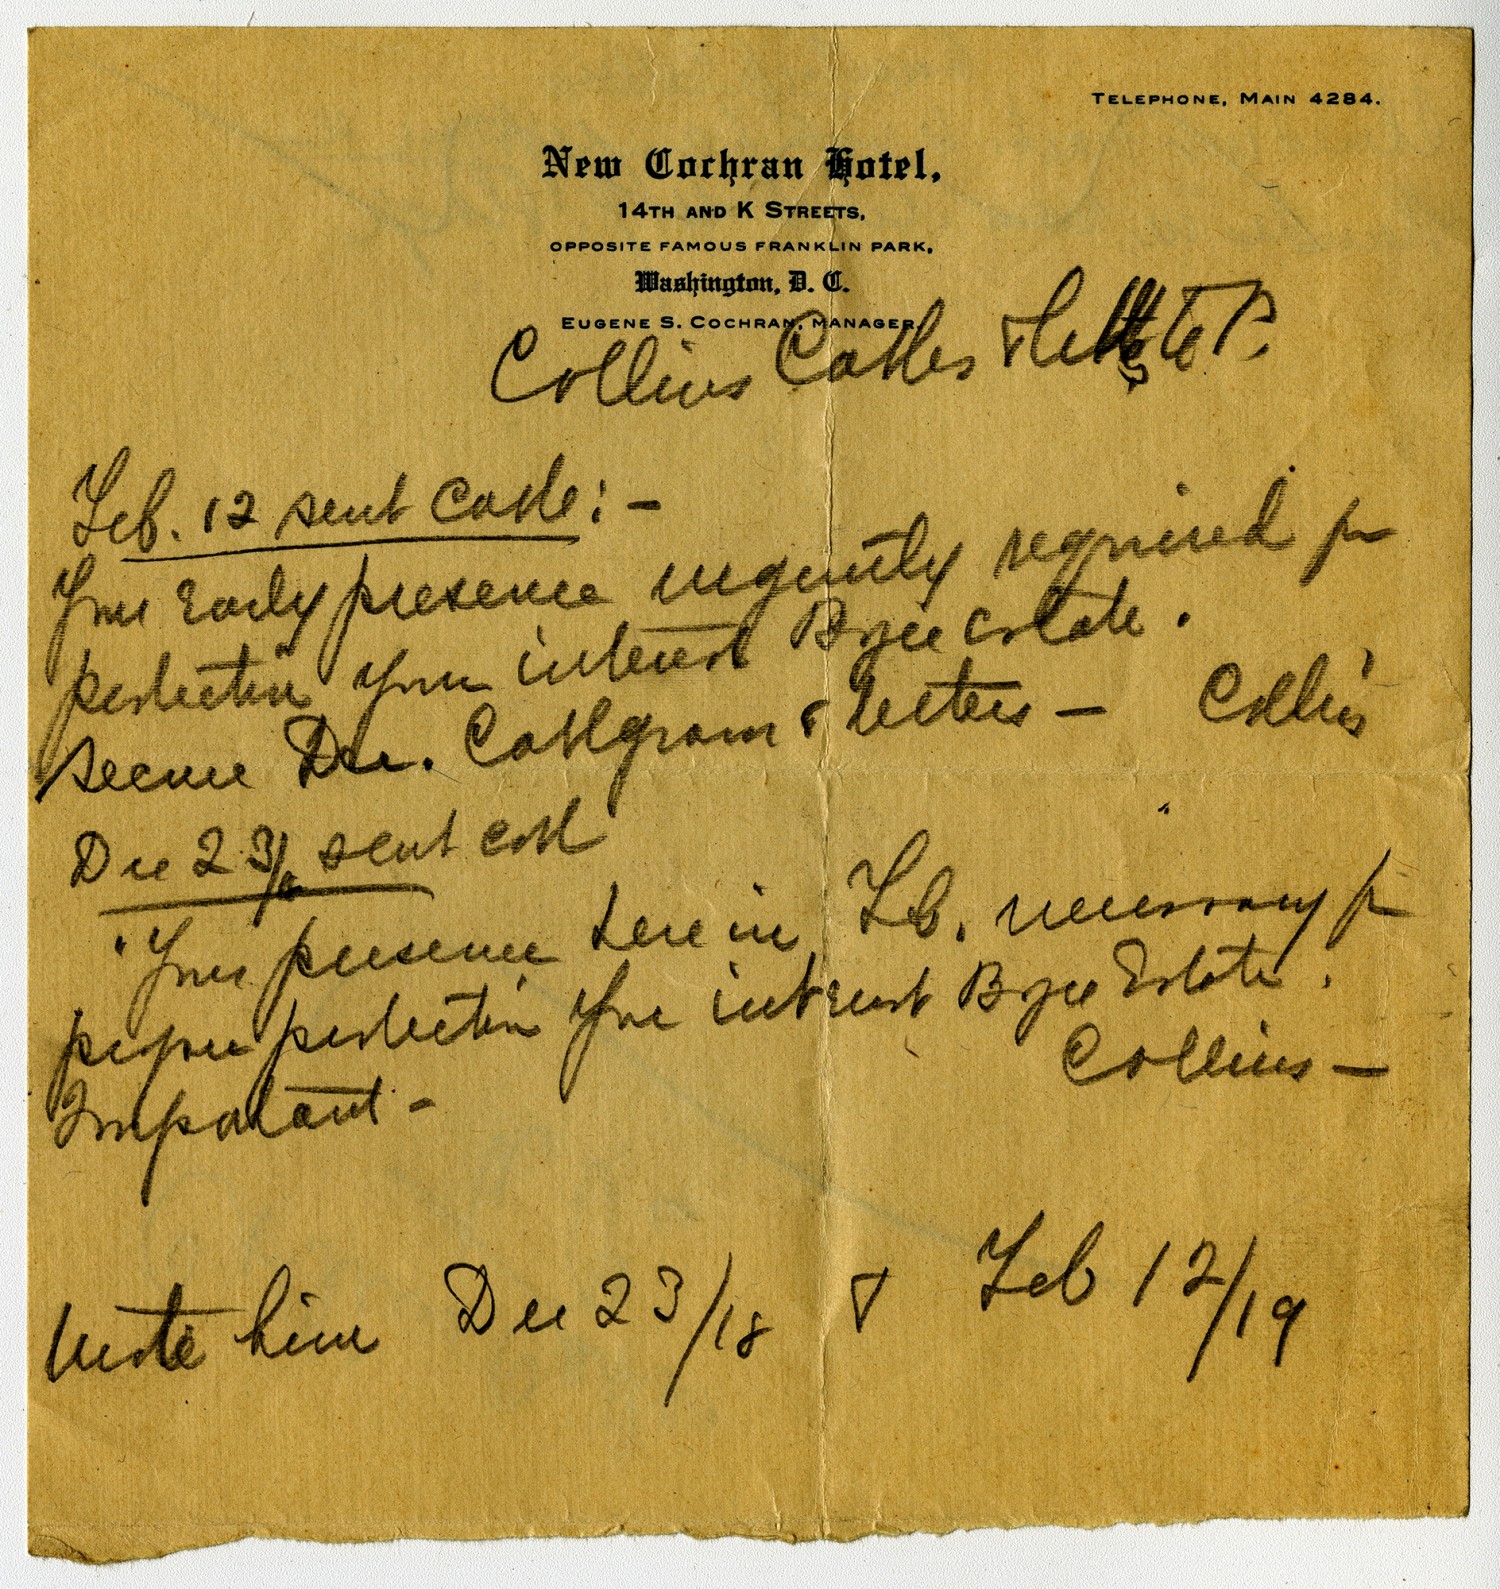 TELEPHONE, MAIN 4284.
New Cochran Hotel,
14TH AND K STREETS,
OPPOSITE FAMOUS FRANKLIN PARK,
Washington, D. C.
EUGENE S. COCHRAN, MANAGER.
Collins Cables & letters to P.
Feb. 12 sent Cable: -
Your Early presence urgently required for
protection your interest Bryce Estate.
Secure Dec. Cablegram & letters - Collins
Dec 23/18 sent cable
"Your presence here in Feb. necessary for
proper protection your interest Bryce Estate.
Collins -
Important -
Wrote him Dec 23/18 & Feb 12/19